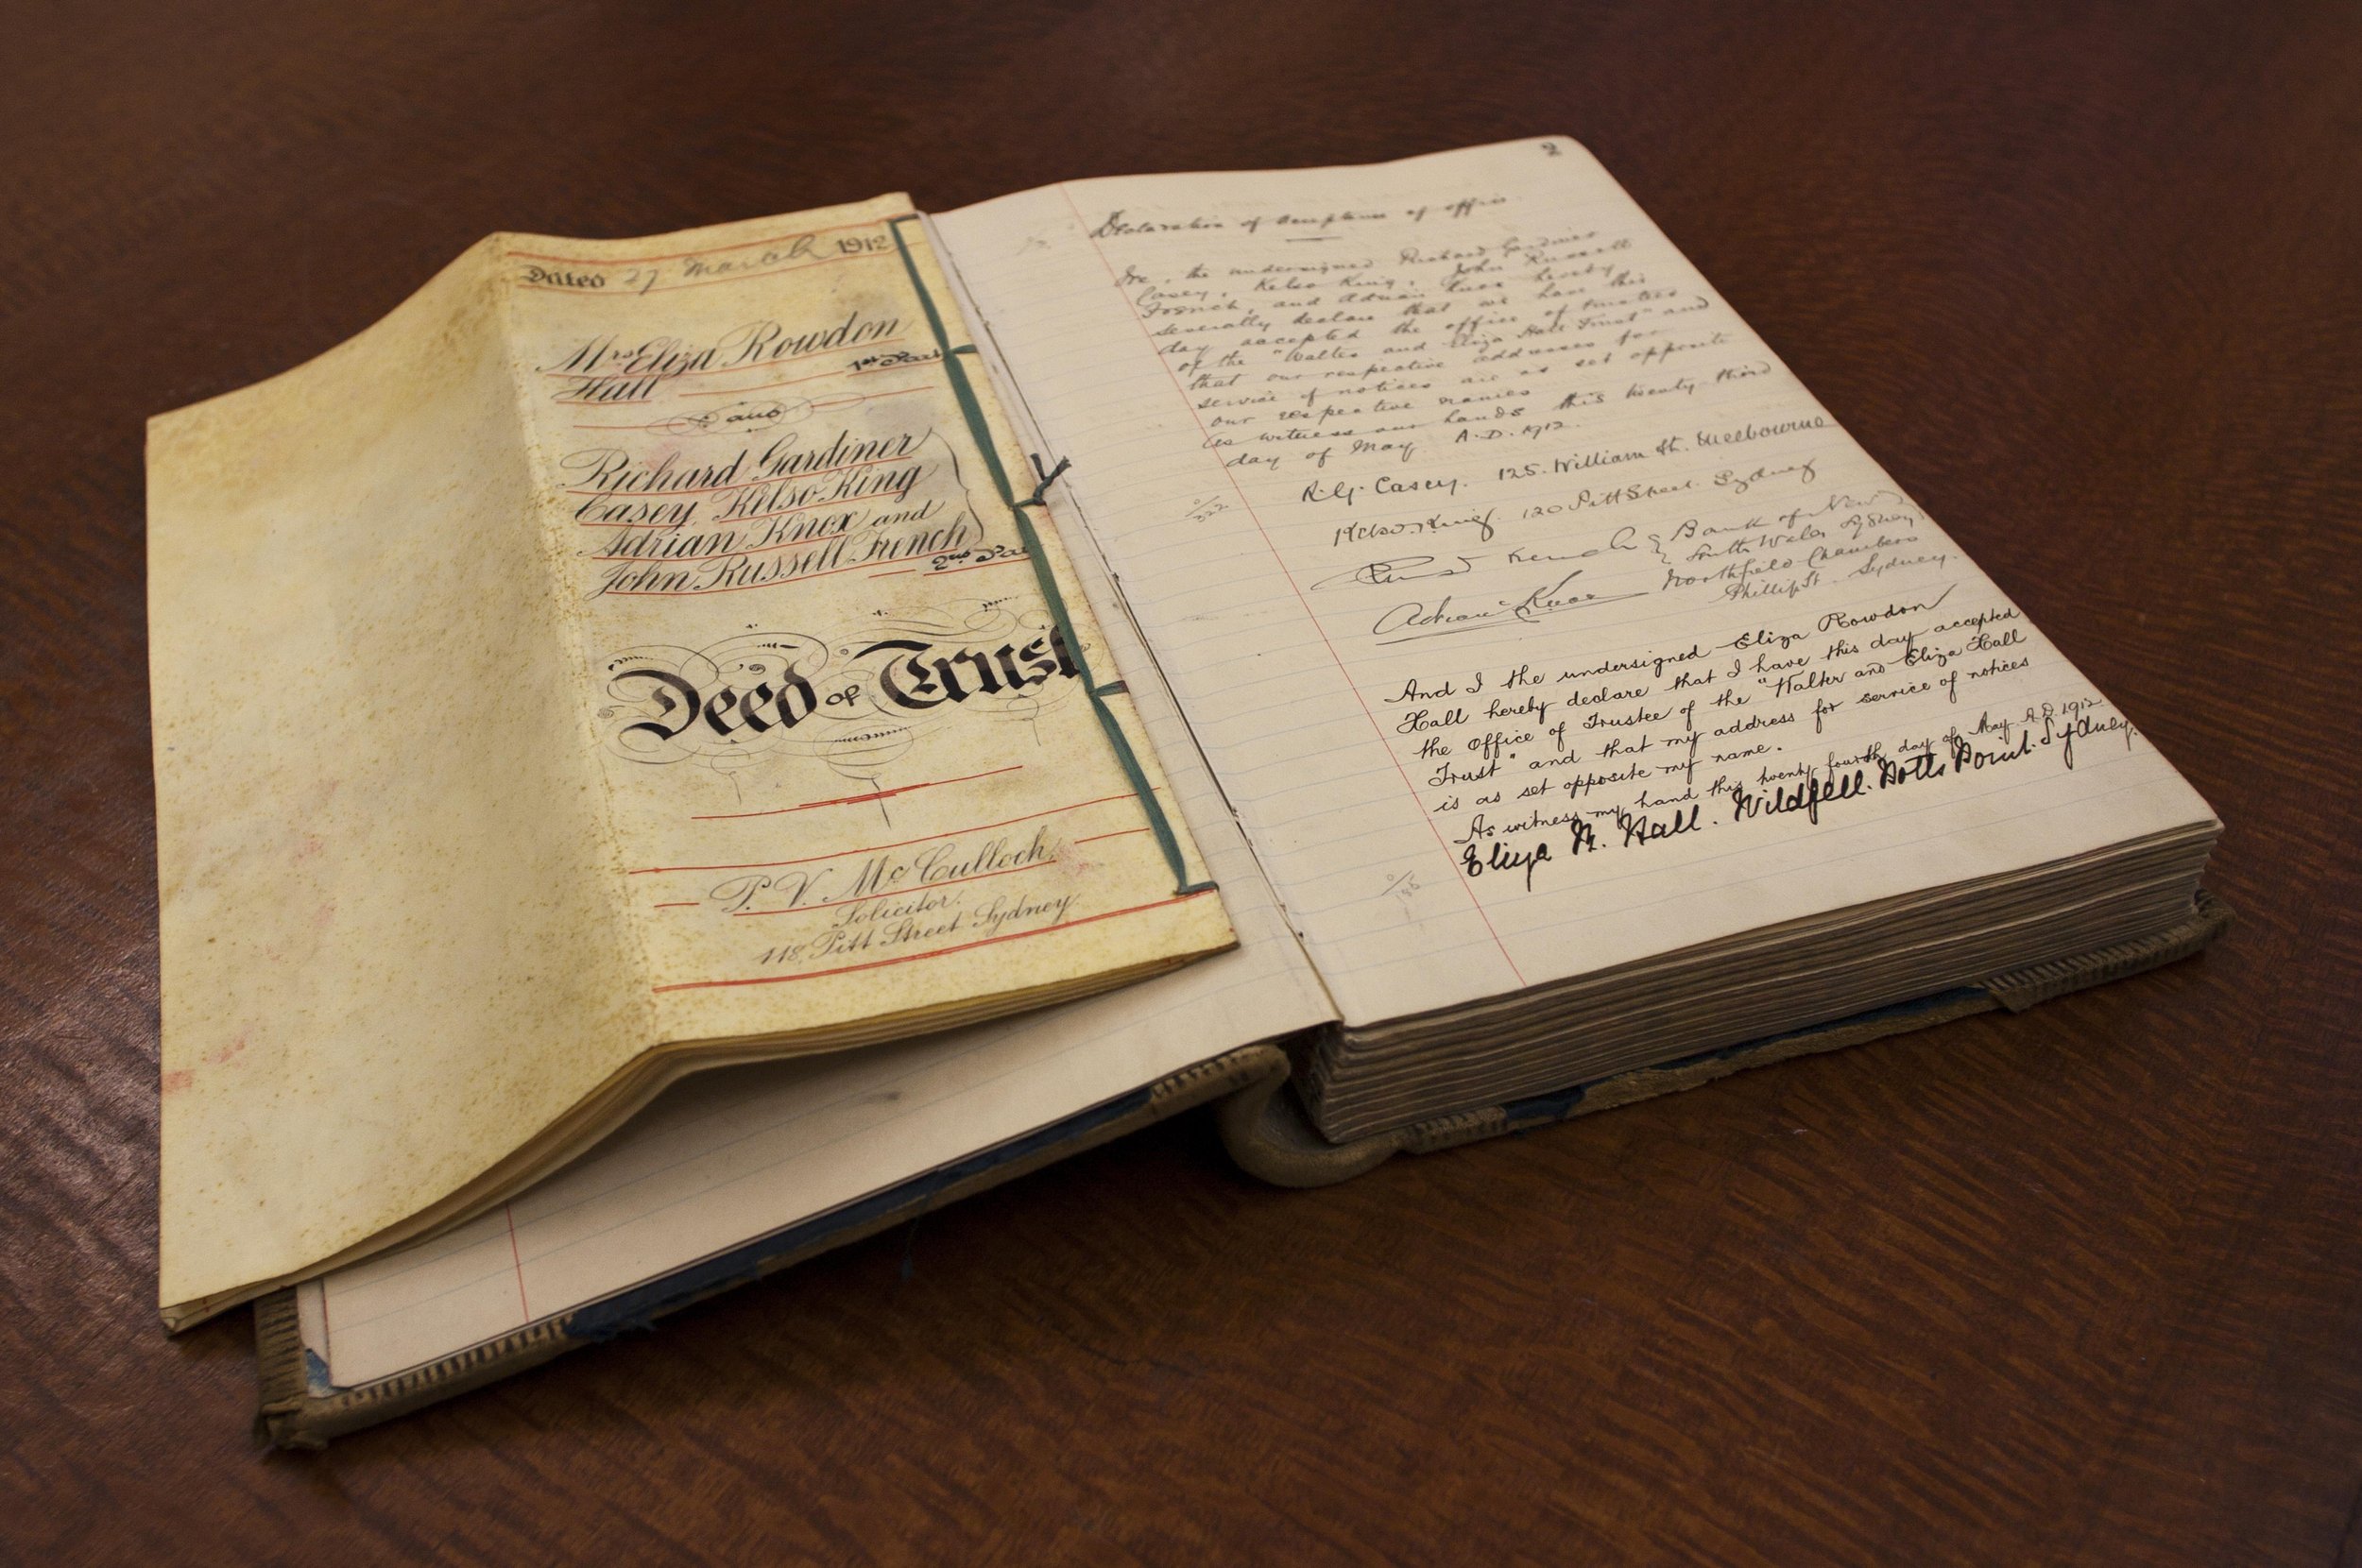 Dated 27 March 1912
Mrs Eliza Rowdon
Hall
1st Part
and
Richard Gardiner
Casey, Kelso King
Adrian Knox and
John Russell French
2nd Par
Deed of Trust
P. V. McCulloch,
Solicitor.
118, Pitt Street Sydney.
2
Declaration of acceptance of office
We, the undersigned Richard Gardiner
Casey, Kelso King, John Russell
French, and Adrian Knox hereby
severally declare that we have this
day accepted the office of trustees
of the "Walter and Eliza Hall Trust" and
that our respective addresses for
service of notices are as set opposite
our respective names
As witness our hands this twenty third
day of May A.D. 1912.
R. G. Casey. 125. William St. Melbourne
Kelso King. 120 Pitt Street. Sydney
French } Bank of New
South Wales Sydney
Adrian Knox Northfield Chambers
Phillip St. Sydney.
And I the undersigned Eliza Rowdon
Hall hereby declare that I have this day accepted
the Office of Trustee of the "Walter and Eliza Hall
Trust" and that my address for service of notices
is as set opposite my name.
As witness my hand this twenty fourth day of May A.D. 1912.
Eliza R. Hall. Wildfell. Potts Point. Sydney.